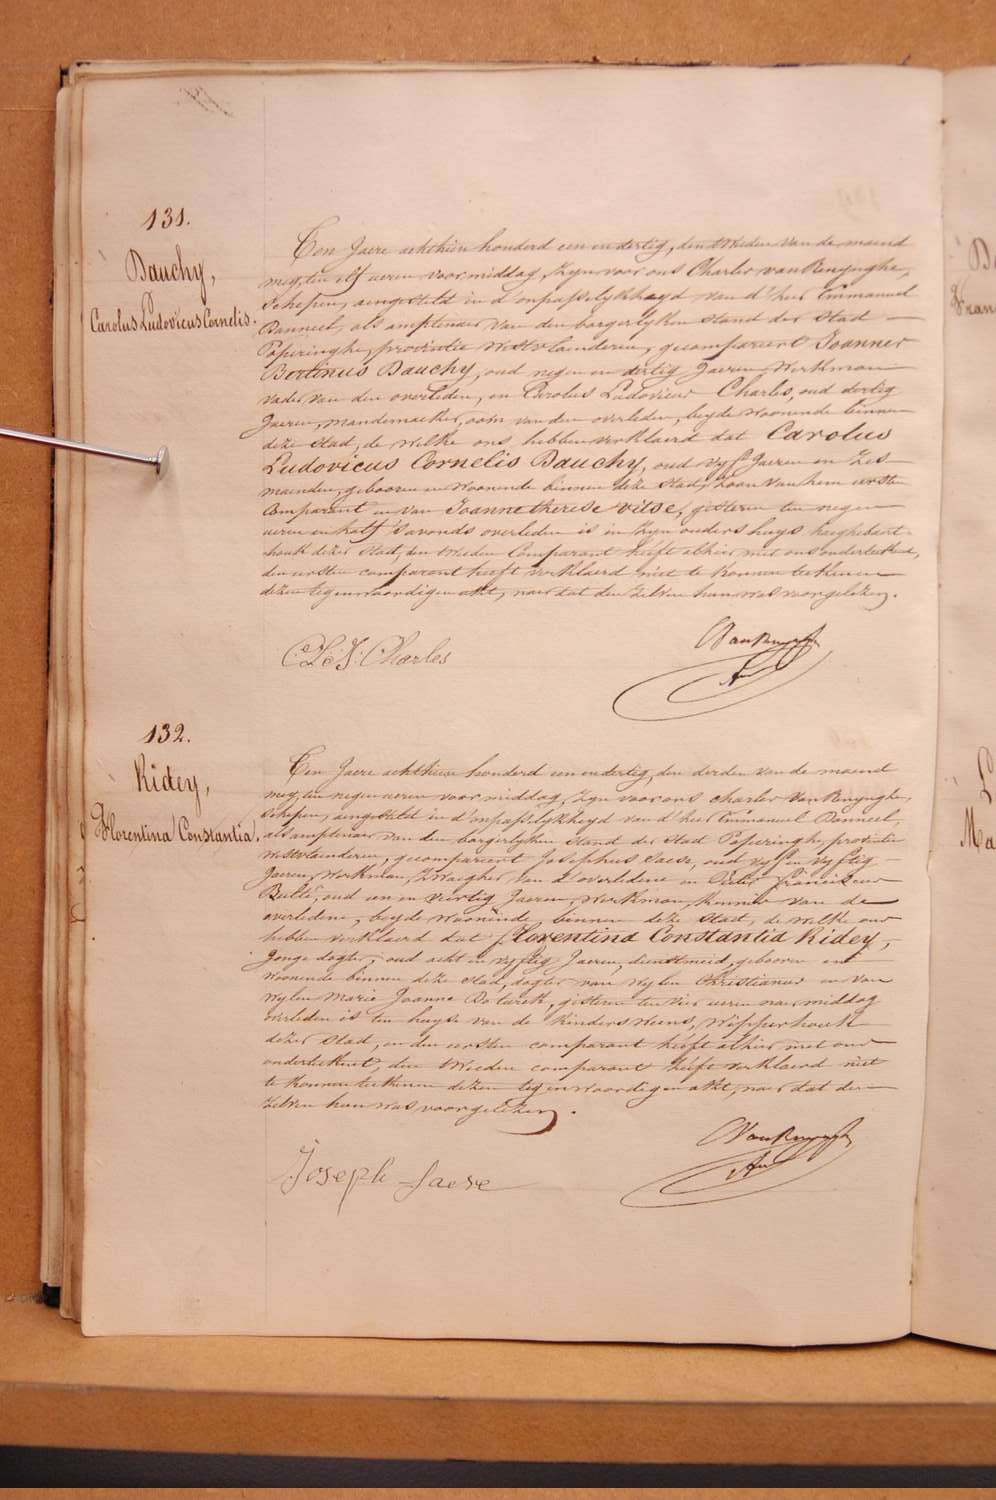 131.
Dauchy,
Carolus Ludovicus Cornelis.
Ten Jaere achthien honderd eenendertig, den tweeden van de maend
mey, ten elf ueren voormiddag, zyn voor ons Charles van Renynghe,
schepen, aengesteld in d'onpasselykheyd van d'heer Emmanuel
Banneel, als amptenaer van den borgerlyken stand der stad
Poperinghe, provintie Westvlaenderen, gecompareert Joannes
Bertinus Dauchy, oud negen en dertig Jaeren, Werkman
vader van den overleden, en Carolus Ludovicus Charles, oud dertig
Jaeren, mandemaeker, oom van den overleden, beyde woonende binnen
deze stad, de welke ons hebben verklaerd dat Carolus
Ludovicus Cornelis Dauchy, oud vyf Jaeren en zes
maenden, gebooren en woonende binnen deze stad, zoon van hem eersten
Comparant en van Joanne therese vitse, gisteren ten negen
ueren en half s'avonds overleden is in zyn ouders huys,
houk dezer stad, den tweeden Comparant heeft alhier met ons onderteekend,
den eersten comparant heeft verklaerd niet te konnen teekenen
dezen tegenwoordigen akt, naer dat den zelven hun was voorgelezen.
C. L. J. Charles
CVanRenynghe
132.
Ridey,
Florentina Constantia.
Ten Jaere achthien honderd eenendertig, den derden van de maend
mey, ten negen ueren voormiddag, zyn voor ons charles van Renynghe,
schepen, aengesteld in d'onpasselykheyd van d'heer Emmanuel Banneel,
als amptenaer van den borgerlyken stand der stad Poperinghe, provintie
Westvlaenderen, gecompareert Josephus Saese, oud vyf en vyftig
Jaeren, Werkman, zwaegher van d'overledene en Pieter franciscus
Bulté, oud een en veertig Jaeren, Werkman, kennis van de
overledene, beyde woonende binnen deze stad, de welke ons
hebben verklaerd dat florentina Constantia Ridey,
Jonge dogter, oud acht en vyftig Jaeren, dienstmeid, gebooren en
woonende binnen deze stad, dogter van wylen Christianus en van
wylen Marie Joanne, gisteren ten vier ueren naer middag
overleden is ten huyse van de kinders Weens, Wipperhouk
dezer stad, en den eersten comparant heeft alhier met ons
onderteekent, den tweeden comparant heeft verklaerd niet
te konnen teekenen dezen tegenwoordigen akt, naer dat den
zelven hun was voorgelezen.
Joseph Saese
CVanRenynghe